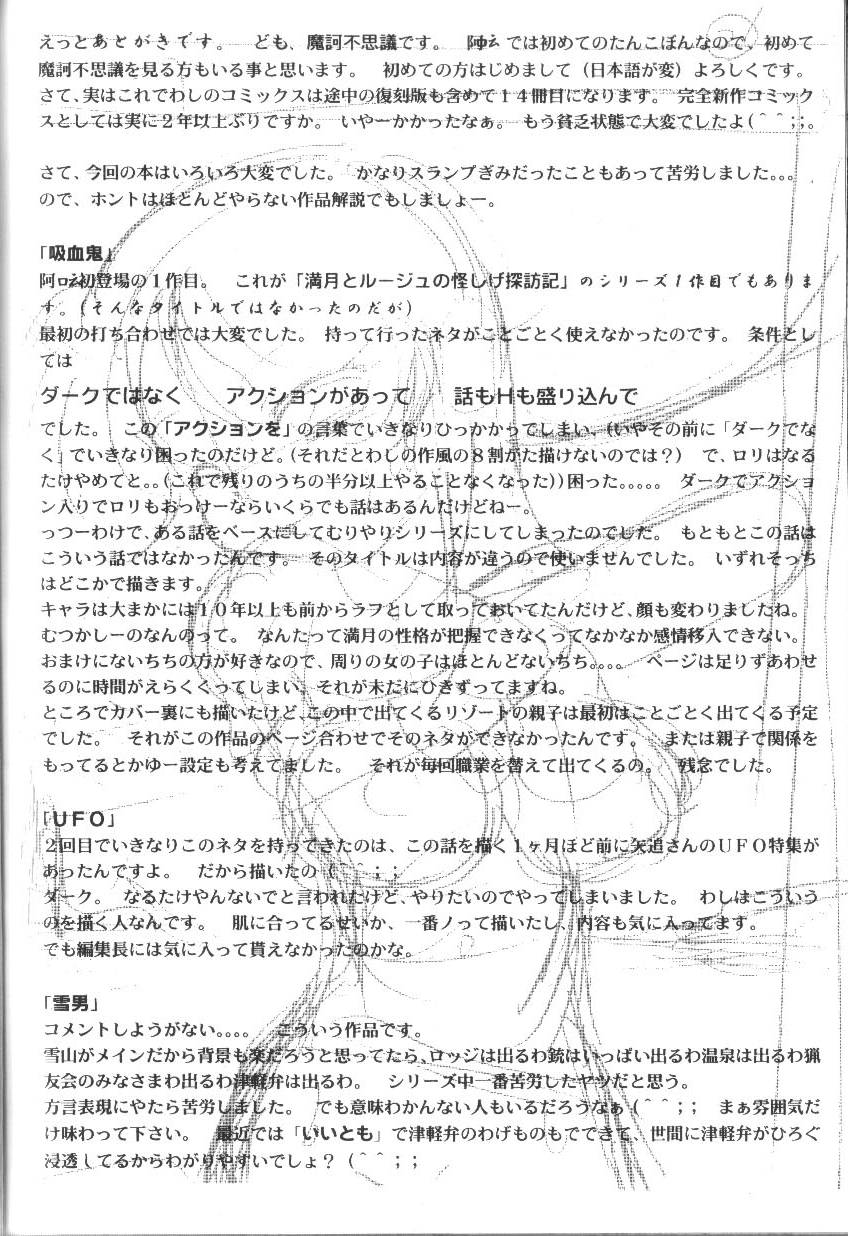 えっとあとがきです。　ども、魔訶不思議です。　阿ロ云では初めてのたんこぼんなので、初めて
魔訶不思議を見る方もいる事と思います。　初めての方はじめまして（日本語が変）よろしくです。
さて、実はこれでわしのコミックスは途中の復刻版も含めて１４冊目になります。　完全新作コミック
スとしては実に２年以上ぶりですか。　いやーかかったなぁ。　もう貧乏状態で大変でしたよ（＾＾；；。
さて、今回の本はいろいろ大変でした。　かなりスランプぎみだったこともあって苦労しました。。。
ので、ホントはほとんどやらない作品解説でもしましょー。
「吸血鬼」
阿ロ云初登場の１作目。　これが「満月とルージュの怪しげ探訪記」のシリーズ１作目でもありま
す。（そんなタイトルではなかったのだが）
最初の打ち合わせでは大変でした。　持って行ったネタがことごとく使えなかったのです。　条件とし
ては
ダークではなく　　アクションがあって　　話もＨも盛り込んで
でした。　この「アクションを」の言葉でいきなりひっかかってしまい、（いやその前に「ダークでな
く」でいきなり困ったのだけど。（それだとわしの作風の８割がた描けないのでは？）　で、ロリはなる
たけやめてと。。（これで残りのうちの半分以上やることなくなった））困った。。。。。　ダークでアクショ
ン入りでロリもおっけーならいくらでも話はあるんだけどねー。
っつーわけで、ある話をベースにしてむりやりシリーズにしてしまったのでした。　もともとこの話は
こういう話ではなかったんです。　そのタイトルは内容が違うので使いませんでした。　いずれそっち
はどこかで描きます。
キャラは大まかには１０年以上も前からラフとして取っておいてたんだけど、顔も変わりましたね。
むつかしーのなんのって。　なんたって満月の性格が把握できなくってなかなか感情移入できない。
おまけにないちちの方が好きなので、周りの女の子はほとんどないちち。。。。　ページは足りずあわせ
るのに時間がえらくくってしまい、それが未だにひきずってますね。
ところでカバー裏にも描いたけど、この中で出てくるリゾートの親子は最初はことごとく出てくる予定
でした。　それがこの作品のページ合わせでそのネタができなかったんです。　または親子で関係を
もってるとかゆー設定も考えてました。　それが毎回職業を替えて出てくるの。　残念でした。
「ＵＦＯ」
２回目でいきなりこのネタを持ってきたのは、この話を描く１ヶ月ほど前に矢追さんのＵＦＯ特集が
あったんですよ。　だから描いたの（＾＾；；
ダーク。　なるたけやんないでと言われたけど、やりたいのでやってしまいました。　わしはこういう
のを描く人なんです。　肌に合ってるせいか、一番ノって描いたし、内容も気に入ってます。
でも編集長には気に入って貰えなかったのかな。
「雪男」
コメントしようがない。。。。　こういう作品です。
雪山がメインだから背景も楽だろうと思ってたら、ロッジは出るわ銃はいっぱい出るわ温泉は出るわ猟
友会のみなさまわ出るわ津軽弁は出るわ。　シリーズ中一番苦労したヤツだと思う。
方言表現にやたら苦労しました。　でも意味わかんない人もいるだろうなぁ（＾＾；；　まぁ雰囲気だ
け味わって下さい。　最近では「いいとも」で津軽弁のわげものもでできて、世間に津軽弁がひろぐ
浸透してるからわがりやすいでしょ？（＾＾；；